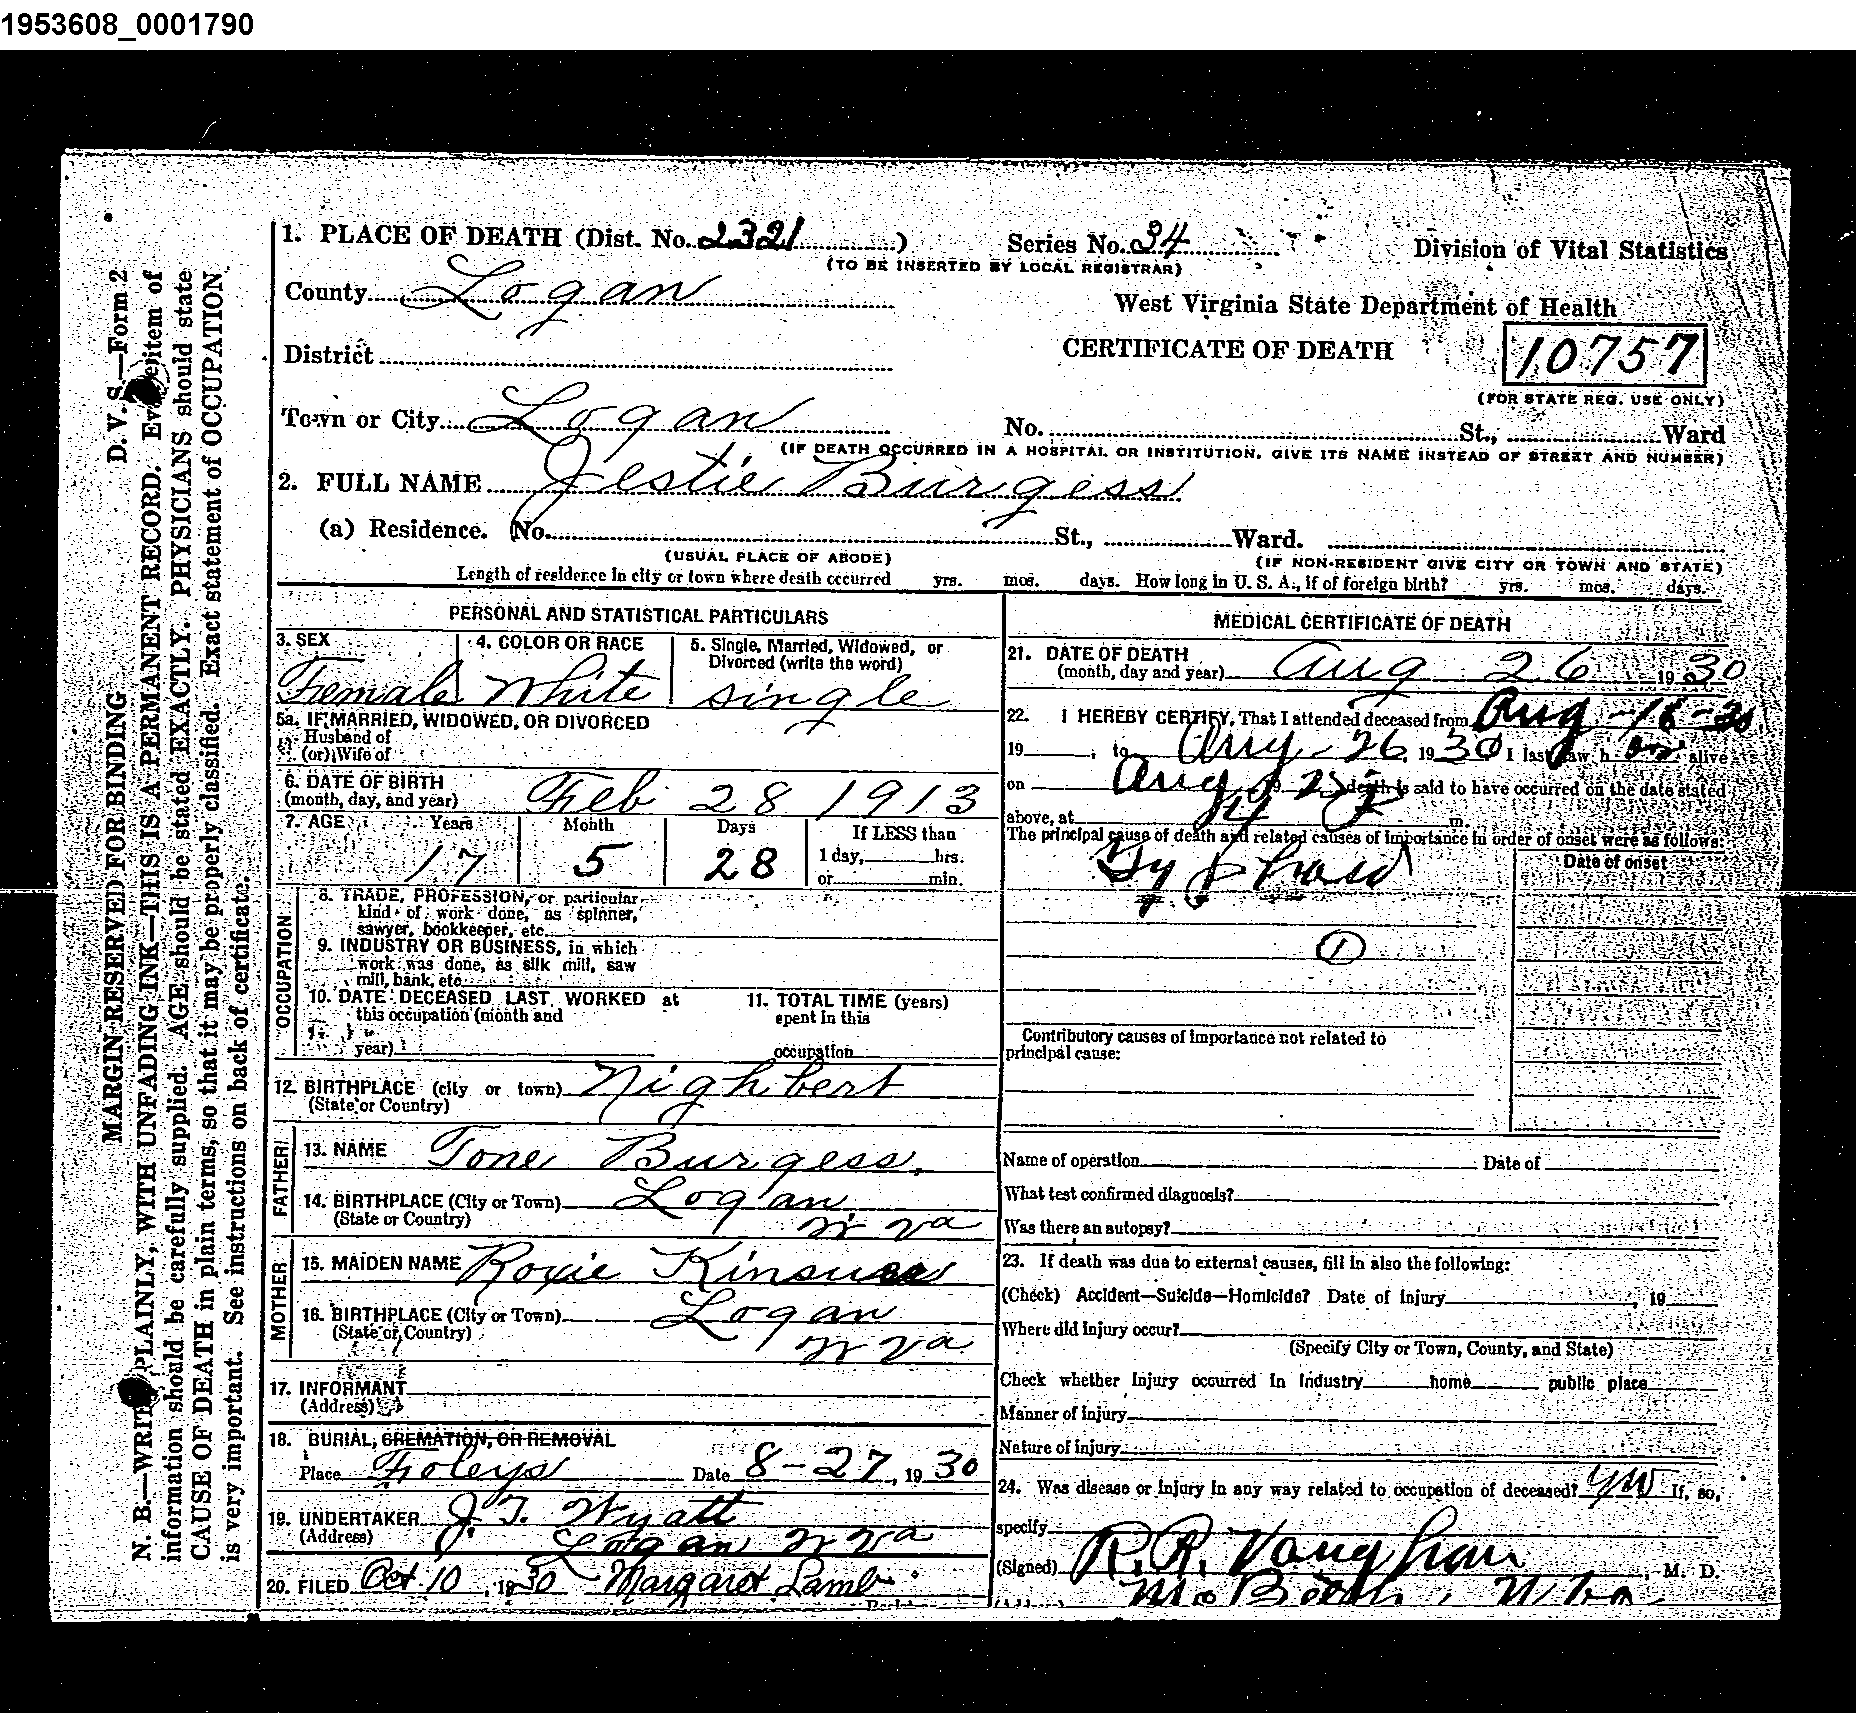 1953608_0001790
1. PLACE OF DEATH (Dist. No. 2321)
Series No. 34
Division of Vital Statistics
(TO BE INSERTED BY LOCAL REGISTRAR)
County Logan
West Virginia State Department of Health
District
CERTIFICATE OF DEATH
10757
(FOR STATE REG. USE ONLY)
Town or City Logan
No. St., Ward
(IF DEATH OCCURRED IN A HOSPITAL OR INSTITUTION, GIVE ITS NAME INSTEAD OF STREET AND NUMBER)
2. FULL NAME Jestie Burgess
(a) Residence. No. St., Ward.
(USUAL PLACE OF ABODE)
(IF NON-RESIDENT GIVE CITY OR TOWN AND STATE)
Length of residence in city or town where death occurred yrs. mos. days. How long in U. S. A., if of foreign birth? yrs. mos. days.
PERSONAL AND STATISTICAL PARTICULARS
3. SEX
4. COLOR OR RACE
5. Single, Married, Widowed, or
Divorced (write the word)
Female White single
5a. IF MARRIED, WIDOWED, OR DIVORCED
Husband of
(or) Wife of
6. DATE OF BIRTH
(month, day, and year) Feb 28 1913
7. AGE Years Month Days If LESS than
17 5 28 1 day, hrs.
or min.
OCCUPATION
8. TRADE, PROFESSION, or particular
kind of work done, as spinner,
sawyer, bookkeeper, etc.
9. INDUSTRY OR BUSINESS, in which
work was done, as silk mill, saw
mill, bank, etc.
10. DATE DECEASED LAST WORKED at
this occupation (month and
year)
11. TOTAL TIME (years)
spent in this
occupation
12. BIRTHPLACE (city or town) Nighbert
(State or Country)
FATHER
13. NAME Tone Burgess
14. BIRTHPLACE (City or Town) Logan
(State or Country) W Va
MOTHER
15. MAIDEN NAME Roxie
16. BIRTHPLACE (City or Town) Logan
(State or Country) W Va
17. INFORMANT
(Address)
18. BURIAL, CREMATION, OR REMOVAL
Place Foleys Date 8-27, 1930
19. UNDERTAKER J. T. Wyatt
(Address) Logan W Va
20. FILED Oct 10, 1930 Margaret Lamb
MEDICAL CERTIFICATE OF DEATH
21. DATE OF DEATH
(month, day and year) Aug 26 1930
22. I HEREBY CERTIFY, That I attended deceased from Aug -16-30
19 , to Aug - 26, 1930 I last saw h er alive
on Aug 25 death is said to have occurred on the date stated
above, at m.
The principal cause of death and related causes of importance in order of onset were as follows:
Date of onset
Typhoid
1
Contributory causes of importance not related to
principal cause:
Name of operation Date of
What test confirmed diagnosis?
Was there an autopsy?
23. If death was due to external causes, fill in also the following:
(Check) Accident—Suicide—Homicide? Date of injury , 19
Where did injury occur?
(Specify City or Town, County, and State)
Check whether injury occurred in industry home public place
Manner of injury
Nature of injury
24. Was disease or injury in any way related to occupation of deceased? If, so,
specify
(Signed) R. R. Vaughan, M. D.
MARGIN RESERVED FOR BINDING D. V. S.—Form 2
N. B.—WRITE PLAINLY, WITH UNFADING INK—THIS IS A PERMANENT RECORD. Every item of
information should be carefully supplied. AGE should be stated EXACTLY. PHYSICIANS should state
CAUSE OF DEATH in plain terms, so that it may be properly classified. Exact statement of OCCUPATION
is very important. See instructions on back of certificate.